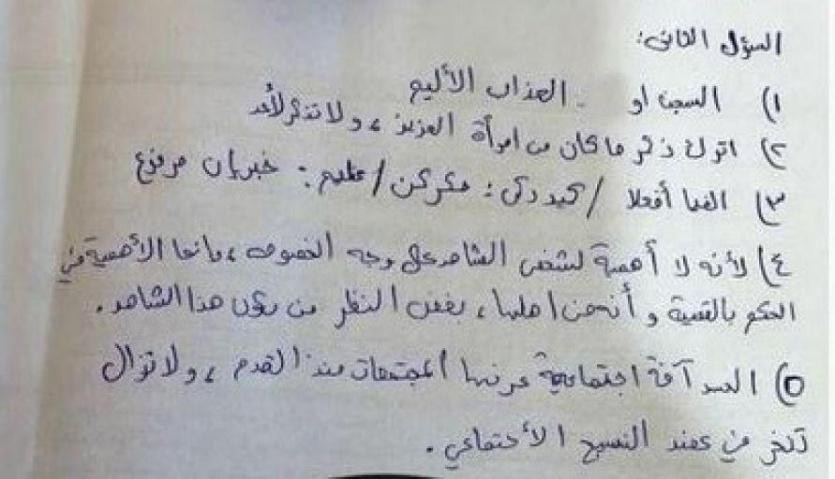 السؤال الثاني:
١) السجن او العذاب الأليم
٢) اترك ذكر ما كان من امرأة العزيز، ولا تذكر لأحد
٣) الفيا أفعلا / كيدكن: مكركن / عظيم: خبر إن مرفوع
٤) لأنه لا أهمية لشخص الشاهد على وجه الخصوص، وإنما الأهمية في
الحكم بالقضية و أنه من اهلها، بغض النظر من يكون هذا الشاهد.
٥) الحسد آفة اجتماعية عرفتها المجتمعات منذ القدم، ولا تزال
تنخر في عضد النسيج الأجتماعي.